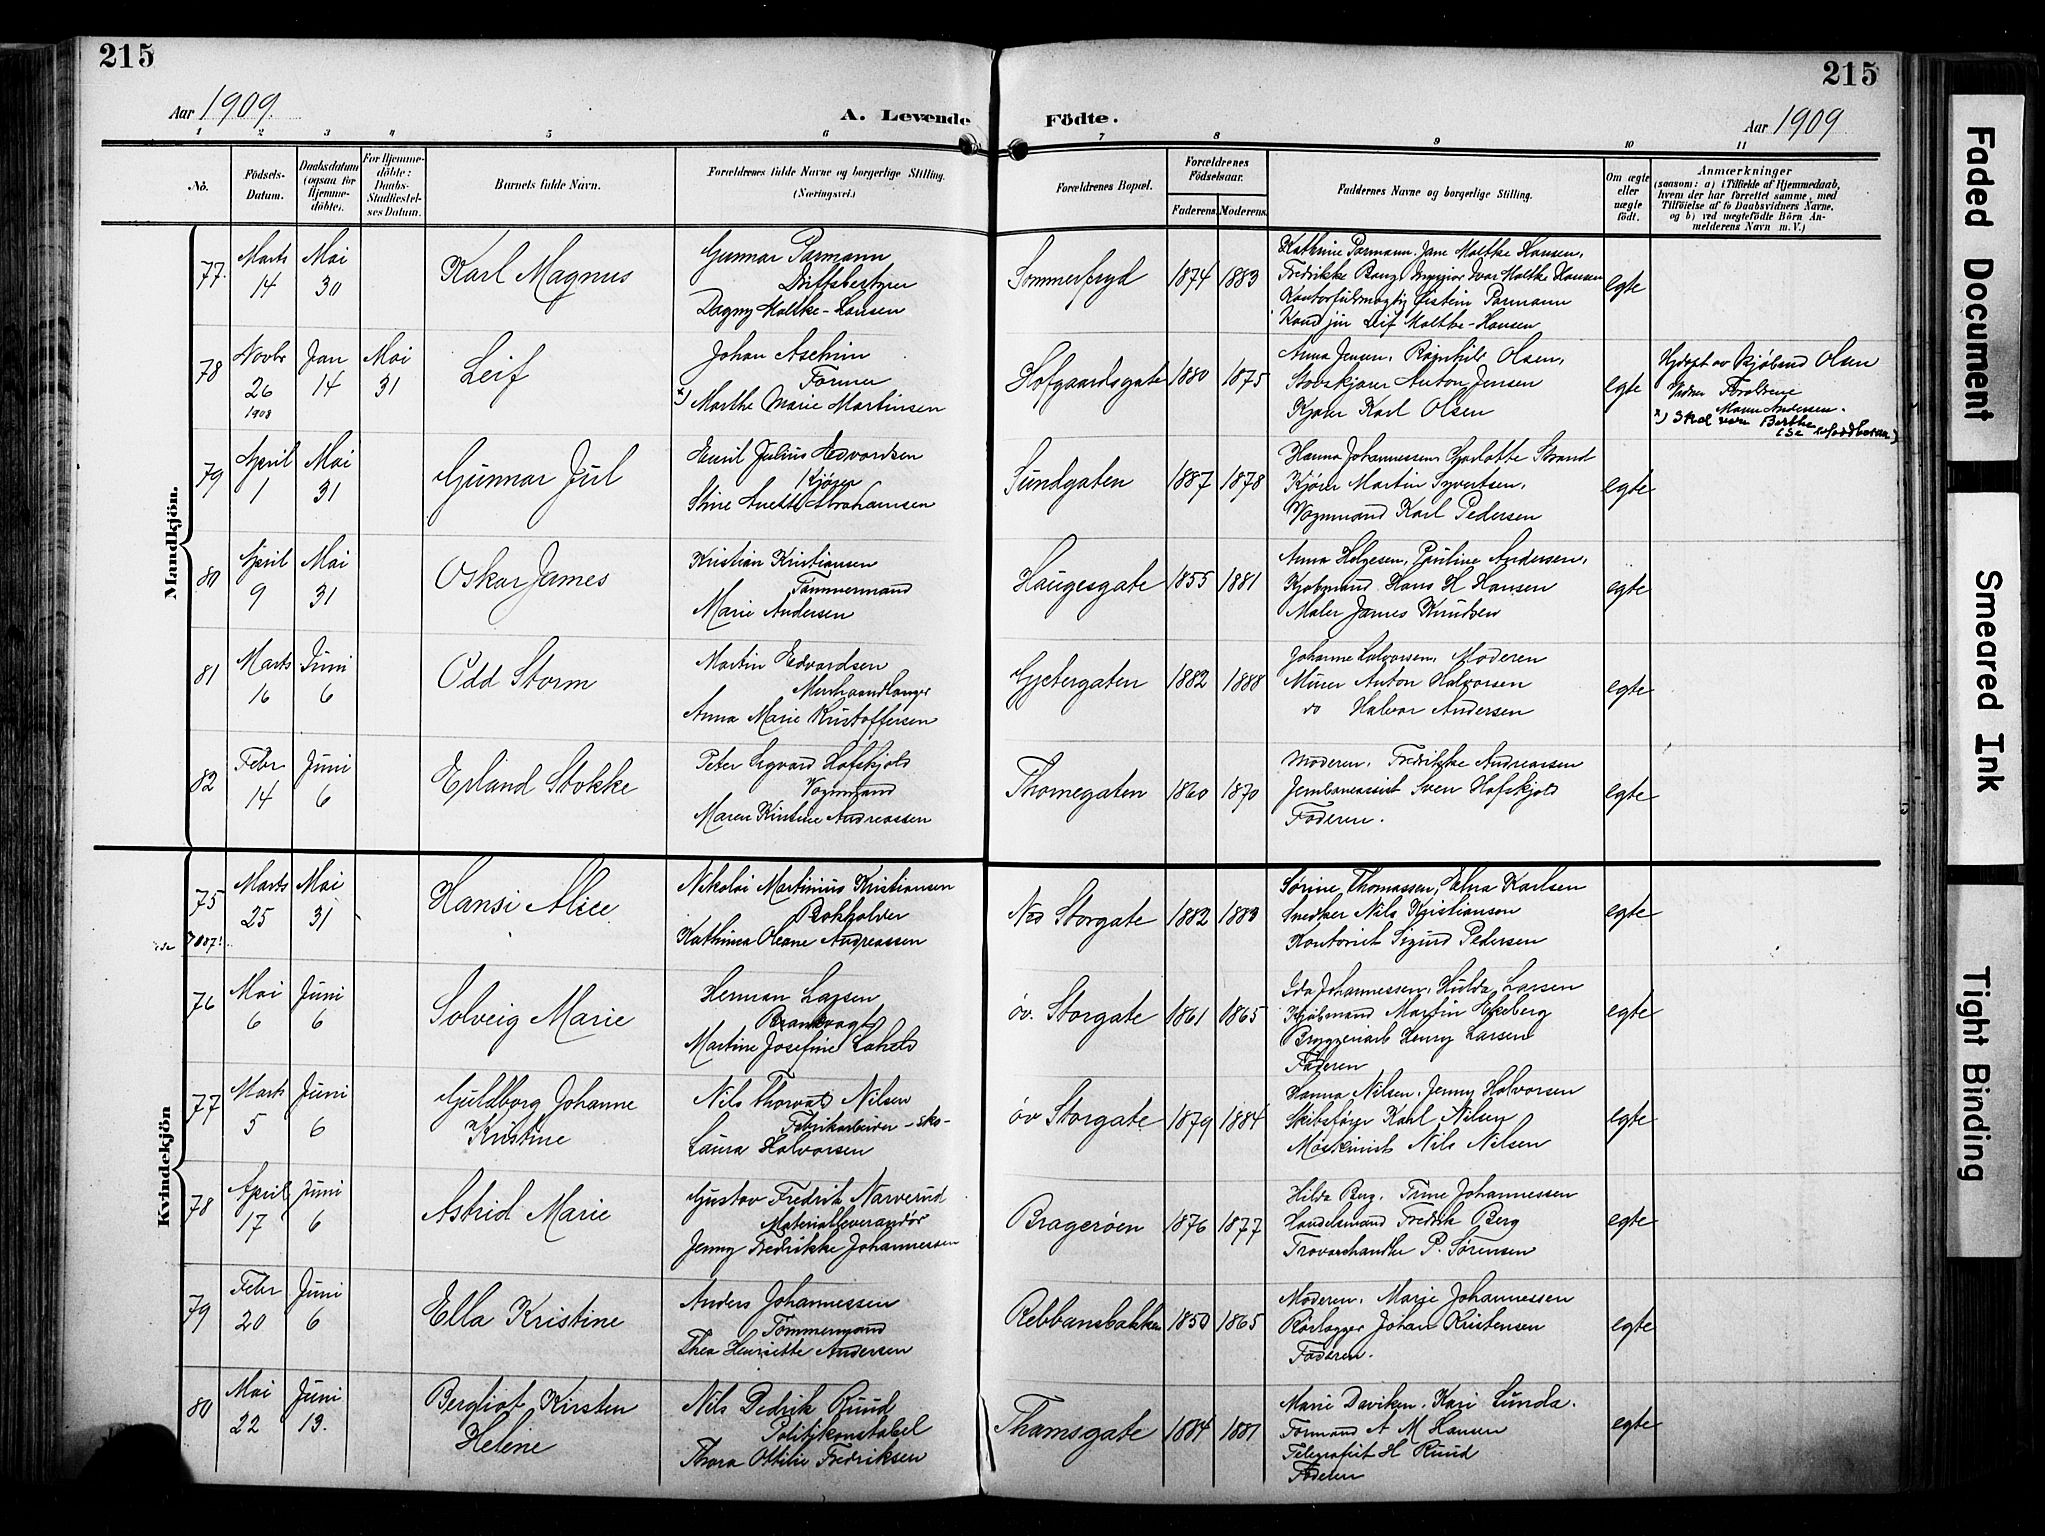 215
215
Aar 1909.
A. Levende
Födte.
Aar 1909
1 2 3 4 5 6 7 8 9 10 11
No.
Födsels-Datum.
Daabsdatum (ogsaa for Hjemme-döbte).
For Hjemme-döbte: Daabs-Stadfæstel-ses Datum.
Barnets fulde Navn.
Forældrenes fulde Navne og borgerlige Stilling.
(Næringsvei.)
Forældrenes Bopæl.
Forældrenes Födselsaar.
Faderens. Moderens.
Faddernes Navne og borgerlige Stilling.
Om ægte eller uægte födt.
Anmærkninger
(saasom: a) i Tilfælde af Hjemmedaab, hvem der har forrettet samme, med Tilföielse af to Daabsvidners Navne, og b) ved uegtefödte Börn An-melderens Navn m. V.)
Mandkjön.
77. Marts 14 Mai 30 Karl Magnus
Gunnar Parmann
Driftsbestyrer
Dagny Moltke-Hansen
Sommerfryd 1874 1883
Kathrine Parmann, Jane Moltke Hansen,
Fredrikke Bang, Ingeniør Ivar Moltke Hansen
Kontorfuldmægtig Eistein Parmann
Kand jur Leif Moltke-Hansen
egte
78 Novbr 26 1908 Jan 14 Mai 31 Leif
Johan Aschim
Former
x) Marthe Marie Martinsen
Hofgaardsgate 1880 1875
Anna Jensen, Ragnhild Olsen,
Anton Jensen
Kjører Karl Olsen
egte
Hjdøpt av Olsen
Vidner Forældrene
Maren Andersen.
x) Skal være Berthe
79 April 1 Mai 31 Gunnar Jul
Emil Julius Edvardsen
Kjører
Stine Anette Abrahamsen
Sundgaten 1887 1878
Hanna Johannessen, Charlotte Strand
Kjører Martin Syvertsen,
Vognmand Karl Pedersen
egte
80 April 9 Mai 31 Oskar James
Kristian Kristiansen
Tømmermand
Marie Andersen
Haugesgate 1855 1881
Anna Helgesen, Pauline Andersen,
Kjøbmand Hans H Hansen
Maler James Knudsen
egte
81 Marts 16 Juni 6 Odd Storm
Martin Edvardsen
Murhaandlanger
Anna Marie Kristoffersen
Gjetergaten 1882 1888
Johanne Halvorsen, Moderen
Murer Anton Halvorsen
do Halvor Andersen
egte
82 Febr 14 Juni 6 Erland Stokke
Peter Sigvard Hofskjold
Vognmand
Maren Kirstine Andreassen
Thornegaten 1860 1870
Moderen, Fredrikke Andreassen
Jernbaneassist Sven Hofskjold
Faderen.
egte
Kvindekjön
75 Marts 25 Mai 31 Hansi Alice
Nikolai Martinius Kristiansen
Bokholder
Kathinca Oleane Andreassen
Ned Storgate 1882 1883
Sørine Thomassen, Elna Karlsen
Snedker Nils Kristiansen
Kontorist Sigurd Pedersen
egte
76 Mai 6 Juni 6 Solveig Marie
Herman Larsen
Brandvagt
Martine Josefine
øv. Storgate 1861 1865
Ida Johannessen, Hulda Larsen
Kjøbmand Martin Ekeberg
Bryggeriarb Henry Larsen
Faderen
egte
77 Marts 5 Juni 6 Guldborg Johanne Kristine
Nils Thorvald Nilsen
Fabrikarbeider - sko-
Laura Halvorsen
øv Storgate 1879 1884
Hanna Nilsen, Jenny Halvorsen
Skibsfører Karl Nilsen
Maskinist Nils Nilsen
egte
78 April 17 Juni 6 Astrid Marie
Gustav Fredrik Narverud
Materialleverandør
Jenny Fredrikke Johannessen
Bragerøen 1876 1877
Hilda Berg, Trine Johannessen
Handelsmand Fredrik Berg
Trævarehandler P. Sørensen
egte
79 Febr 20 Juni 6 Ella Kristine
Anders Johannessen
Tømmermand
Thea Henriette Andersen
Rebbansbakken 1850 1865
Moderen, Marie Johannessen
Rørlægger Johan Kristensen
Faderen.
egte
80 Mai 22 Juni 13. Bergliot Kirsten Helene
Nils Didrik Ruud
Politikonstabel
Thora Ottilie Fredriksen
Thamsgate 1884 1881
Marie Daviken, Kari Lunda.
Formand A M Hansen
Telegrafist H Ruud
Faderen
egte
Faded Document
Smeared Ink
Tight Binding